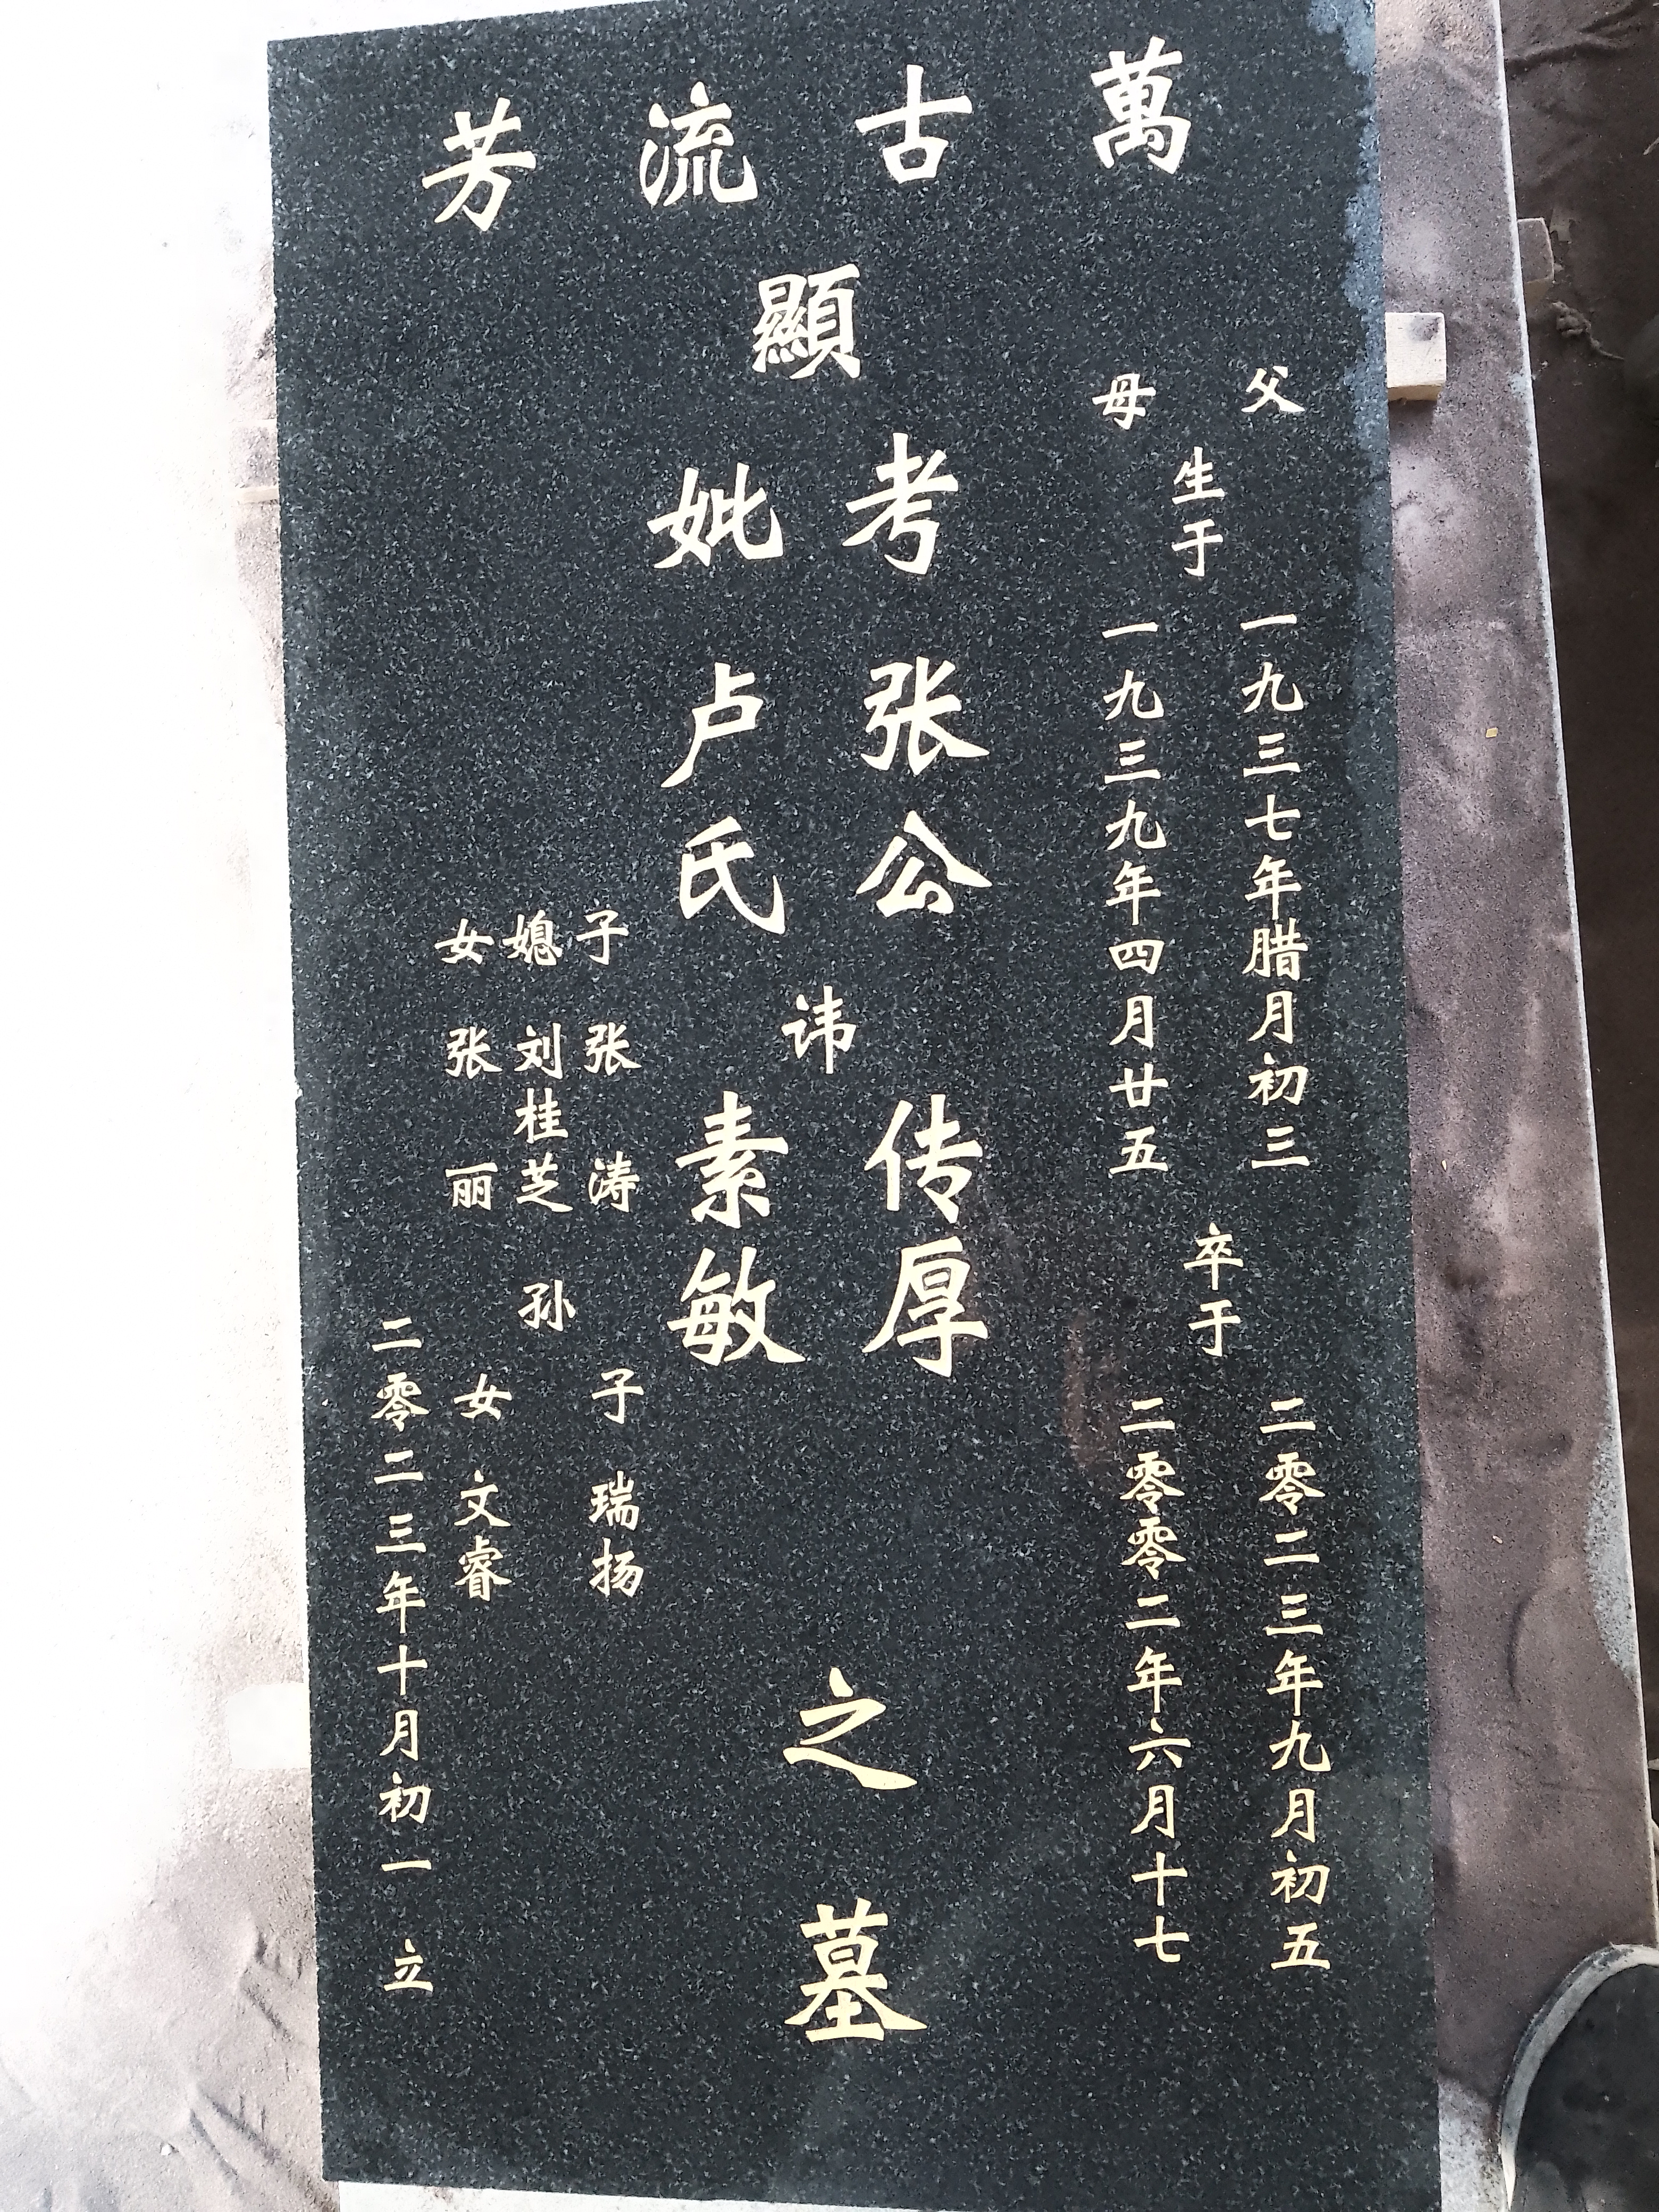 萬古流芳
父
母
生于
一九三七年腊月初三
一九三九年四月廿五
卒于
二零二三年九月初五
二零零二年六月十七
顯
考张公
妣卢氏
讳
传厚
素敏
之墓
子张涛
媳刘桂芝
女张丽
孙
子瑞扬
女文睿
二零二三年十月初一立